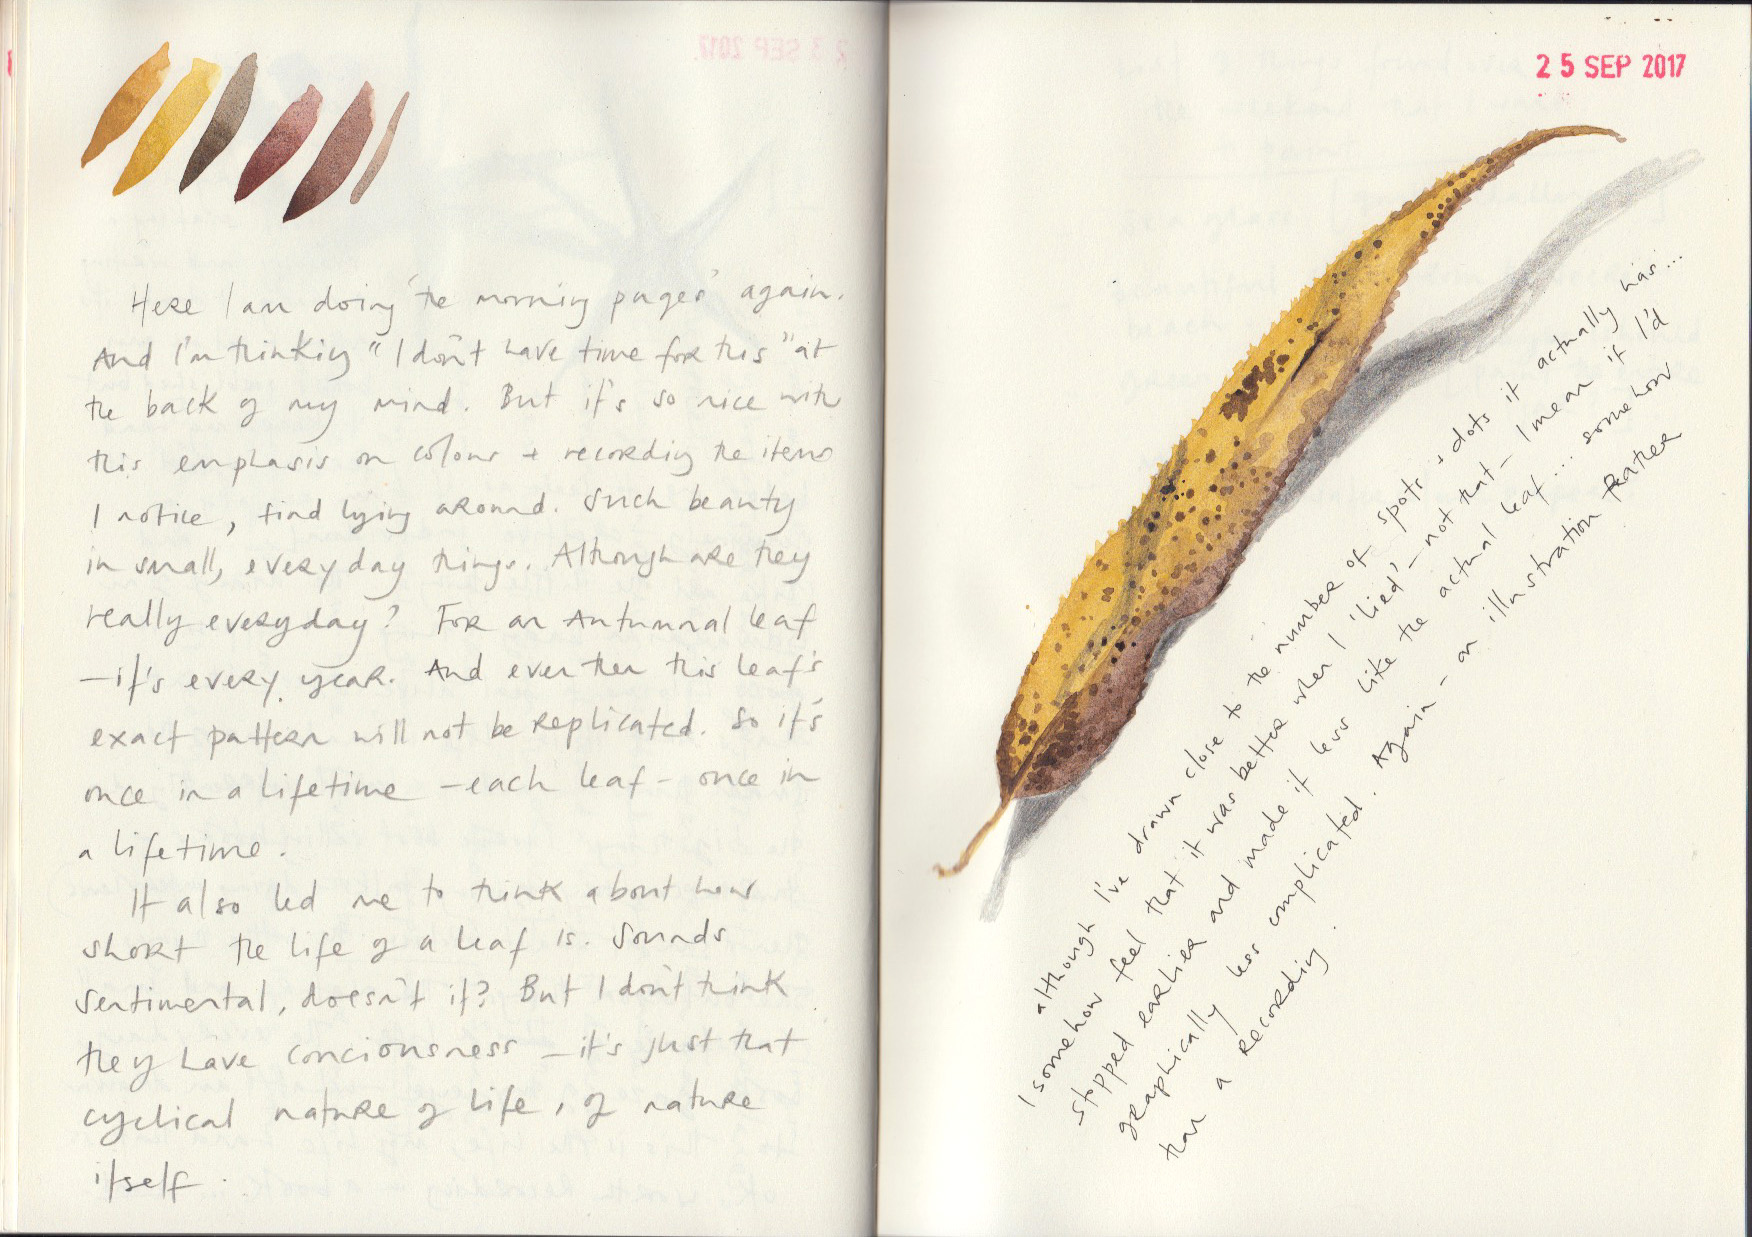 Here I am doing 'the morning pages' again.
And I'm thinking "I don't have time for this" at
the back of my mind. But it's so nice with
this emphasis on colour + recording the items
I notice, find lying around. Such beauty
in small, everyday things. Although are they
really everyday? For an Autumnal leaf
– it's every year. And even then this leaf's
exact pattern will not be replicated. So it's
once in a lifetime – each leaf – once in
a lifetime.
It also led me to think about how
short the life of a leaf is. Sounds
sentimental, doesn't it? But I don't think
they have conciousness – it's just that
cyclical nature of life, of nature
itself.
25 SEP 2017
although I've drawn close to the number of spots + dots it actually has...
I somehow feel that it was better when I 'lied' – not that – I mean if I'd
stopped earlier and made it less like the actual leaf... somehow
graphically less complicated. Again – an illustration rather
than a recording.